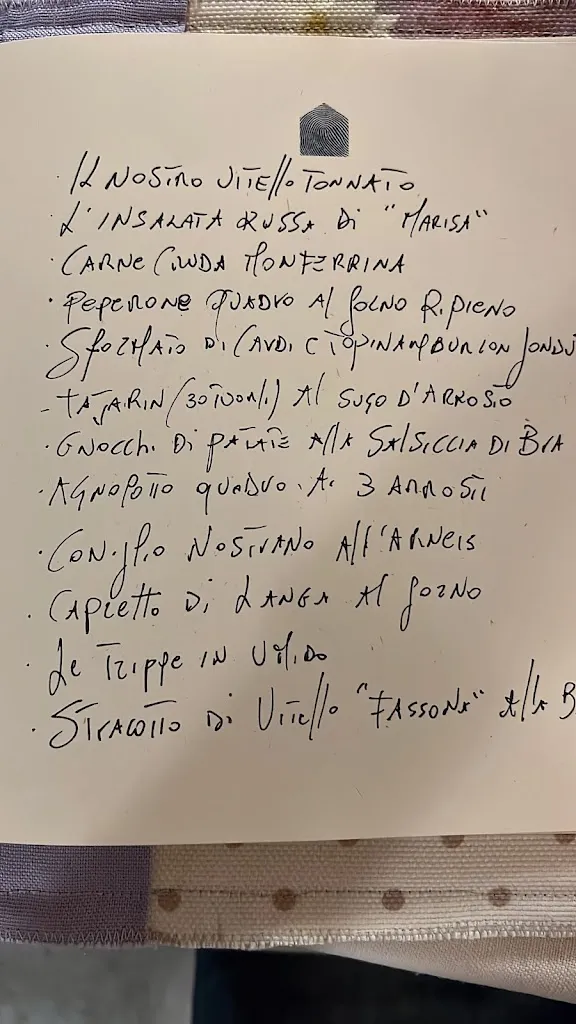 · Il NOSTRO VITELLO TONNATO
· L'INSALATA RUSSA DI "MARISA"
· CARNE CRUDA MONFERRINA
· PEPERONE QUADRO AL FORNO RIPIENO
· SFORMATO DI CARDI E TOPINAMBUR CON FONDU
- TAJARIN (30 TUORLI) AL SUGO D'ARROSTO
· GNOCCHI DI PATATE ALLA SALSICCIA DI BRA
· AGNOLOTTO QUADRO AI 3 ARROSTI
· CONIGLIO NOSTRANO ALL'ARNEIS
· CAPRETTO DI LANGA AL FORNO
· LE TRIPPE IN UMIDO
· STRACOTTO DI VITELLO "FASSONA" ALLA B